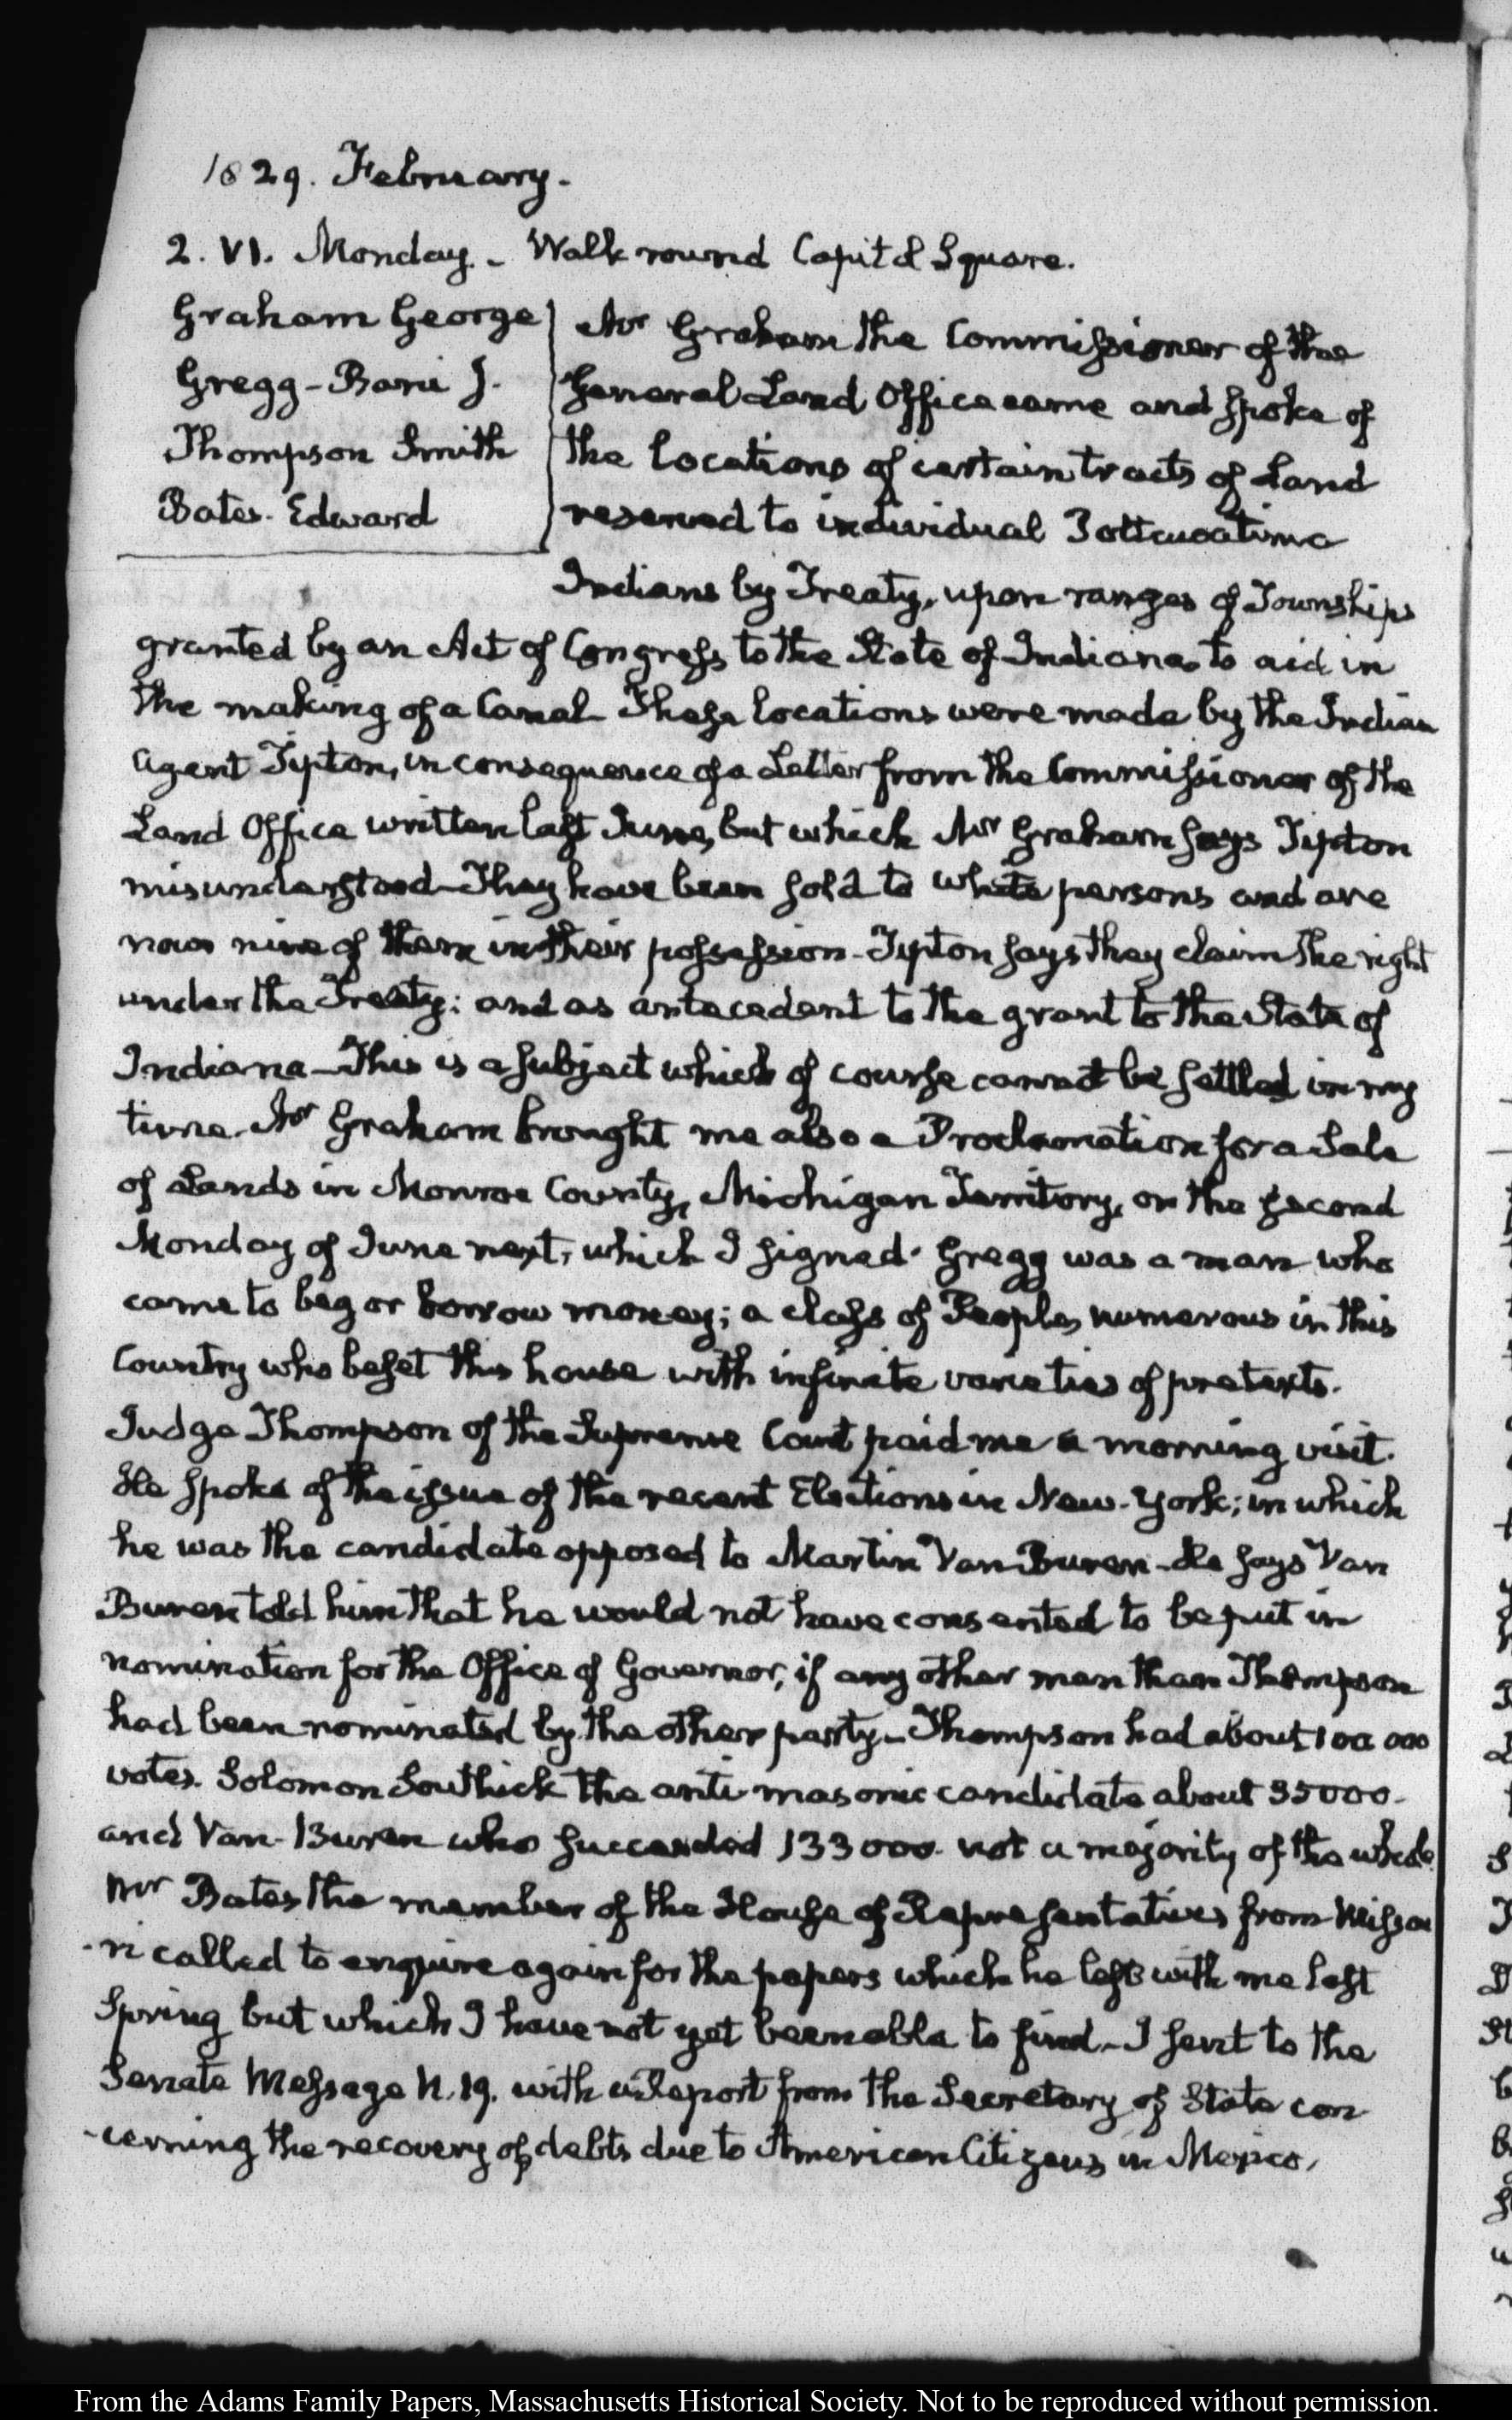 1829. February.
2. VI. Monday. - Walk round Capitol Square.
Graham George
Gregg - J.
Thompson Smith
Bates. Edward
Mr Graham the Commissioner of the
General Land Office came and spoke of
the locations of certain tracts of Land
reserved to individual
Indians by Treaty, upon ranges of Townships
granted by an Act of Congress to the State of Indiana to aid in
the making of a Canal. These locations were made by the Indian
agent Tipton, in consequence of a Letter from the Commissioner of the
Land Office written last June, but which Mr Graham says Tipton
misunderstood - They have been sold to white persons and are
now nine of them in their possession - Tipton says they claim the right
under the Treaty: and as antecedent to the grant to the State of
Indiana - This is a subject which of course cannot be settled in my
time. Mr Graham brought me also a Proclamation for a Sale
of Lands in Monroe County, Michigan Territory, on the second
Monday of June next, which I signed. Gregg was a man who
came to beg or borrow money; a class of People, numerous in this
Country who beset this house with infinite varieties of pretexts.
Judge Thompson of the Supreme Court paid me a morning visit.
He spoke of the issue of the recent Elections in New-York; in which
he was the candidate opposed to Martin Van Buren - He says Van
Buren told him that he would not have consented to be put in
nomination for the Office of Governor, if any other man than Thompson
had been nominated by the other party - Thompson had about 100 000
votes. Solomon Southick the anti masonic candidate about 35000.
and Van-Buren who succeeded 133000. not a majority of the whole
Mr Bates the member of the House of Representatives from Missou
-ri called to enquire again for the papers which he left with me last
Spring but which I have not yet been able to find - I sent to the
Senate Message N. 19. with a Report from the Secretary of State con
-cerning the recovery of debts due to American Citizens in Mexico,
From the Adams Family Papers, Massachusetts Historical Society. Not to be reproduced without permission.